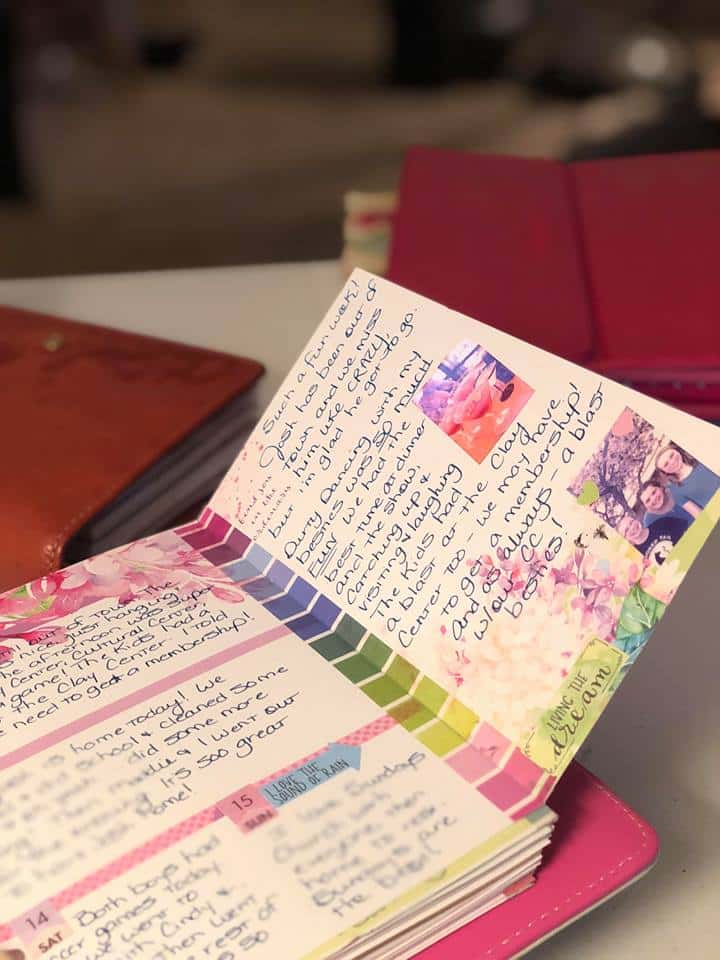 Such a fun week!
Josh has been out of
town and we miss
him like CRAZY!
but i'm glad he got to go.
Dirty Dancing with my
besties was SO much
FUN! we had the
best time at dinner
and the show.
catching up &
visiting & laughing
The Kids had
a blast at the Clay
Center too - we may have
to get a membership!
and as always - a blast
w/our CC
besties!
LIVING THE
dream
out of town. The
just hanging
the afternoon was super
Center. Cultural Center
game! The Kids had a
the Clay Center. I told
need to get a membership!
home today! We
school & cleaned some
did some more
& I went our
It's soo great
home!
I LOVE THE
SOUND OF RAIN
15
SUN
I love Sundays
Church with
everyone then
home to rest.
Sundays are
the best!
14
SAT
Both boys had
games today
we went to
with Cindy &
then went
rest of
so